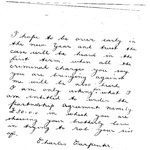 I hope to be over early in
the new year and trust the
case will be heard in the
first term, when all the
criminal charges you say
you are bringing against
me will be also heard
I am only asking what I
am entitled to under the
partnership agreement namely
in which you are
showing brotherly love
in trying to rob your
Charles Carpenter